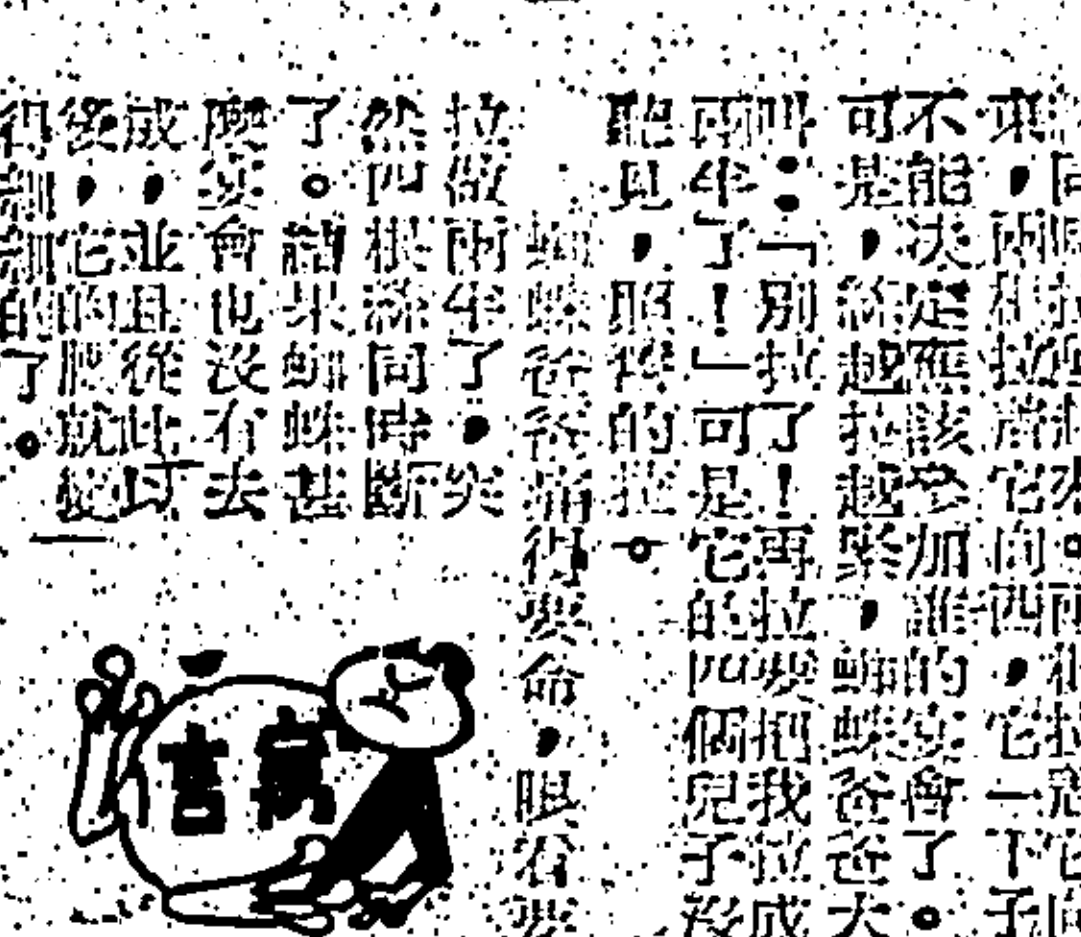 來，兩根拉它向西，它一下子
不能決定應該參加誰的宴會了。
可是，絲越拉越緊，蜘蛛爸爸大
叫：「別拉了！再拉要把我拉成
兩半了！」可是它的四個兒子沒
聽見，照樣的拉。
蜘蛛爸爸痛得要命，眼看要
拉做兩半了，突
然四根絲同時斷
了。結果蜘蛛甚
麼宴會也沒有去
成，並且從此以
後，它的腰就變
得細細的了。